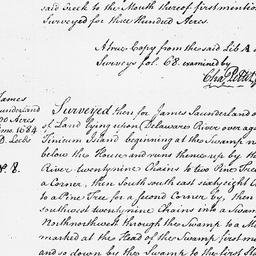 said Creek to the Mouth thereof first mention
Surveyed for three Hundred Acres.
A true Copy from the said Lib A of
Surveys fol. 68. examined by
James
Saunderland
00 Acres
1684
D. Leeds
P. 8.
Surveyed then for James Saunderland o
of Land lying upon Delaware River over aga
Tinicum Island beginning at the Swamp n
below the House and runs thence up by th
River twenty nine Chains to two Pine Tree
a Corner, then South south east sixty eight C
to a Pine Tree for a second Corner by, then
southwest twenty nine Chains into a Swam
Northnorthwest through the Swamp to a M
marked at the Head of the Swamp first m
and so down by the Swamp to the first St